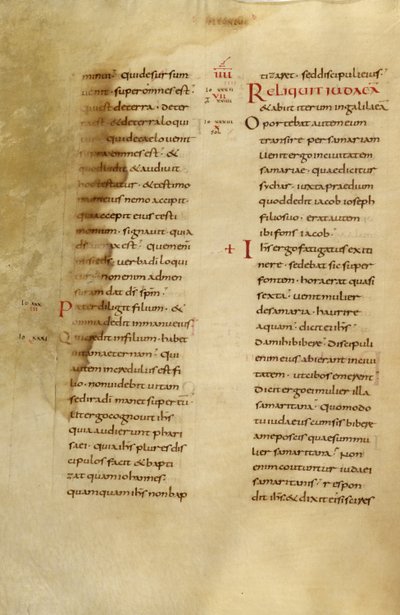 minui · quidesursum
uenit · superomnes est ·
qui est deterra · deter
ra est · & deterra loqui
tur · quidecaelo uenit
supra omnes est · &
quod uidit & audiuit
hoc testatur · & testimo
nium eius nemo accipit ·
qui accepit eius testi
monium · signauit · quia
ds uerax est · quem eni
misit ds · uerba di loqui
tur · non enim admen
suram dat ds spm ·
Pater diligit filium · &
omnia dedit in manu eius ·
Qui credit in filium · habet
uitam aeternam · qui
autem incredulus est fi
lio · non uidebit uitam
sed ira di manet super eu ·
Ut ergo cognouit ihs
quia audierunt phari
saei · quia ihs plures dis
cipulos facit & bapti
zat quam iohannes ·
quam quam ihs non bap
IIII
tizaret · sed discipuli eius ·
Reliquit iudaea
& abiit iterum in galilaea
Oportebat autem eum
transire per samariam
Uenit ergo in ciuitatem
samariae · quae dicitur
sychar · iuxta praedium
quod dedit iacob ioseph
filio suo · erat autem
ibi fons iacob ·
Ihs ergo fatigatus ex iti
nere · sedebat sic super
fontem · hora erat quasi
sexta · uenit mulier
de samaria · haurire
aquam · dicit ei ihs ·
da mihi bibere · discipuli
enim eius abierant in ciui
tatem · ut cibos emerent
Dicit ergo ei mulier illa
samaritana · quomodo
tu iudaeus cum sis bibere
a me poscis quae sum mu
lier samaritana · Non
enim coutuntur iudaei
samaritanis · respon
dit ihs & dixit ei si scires